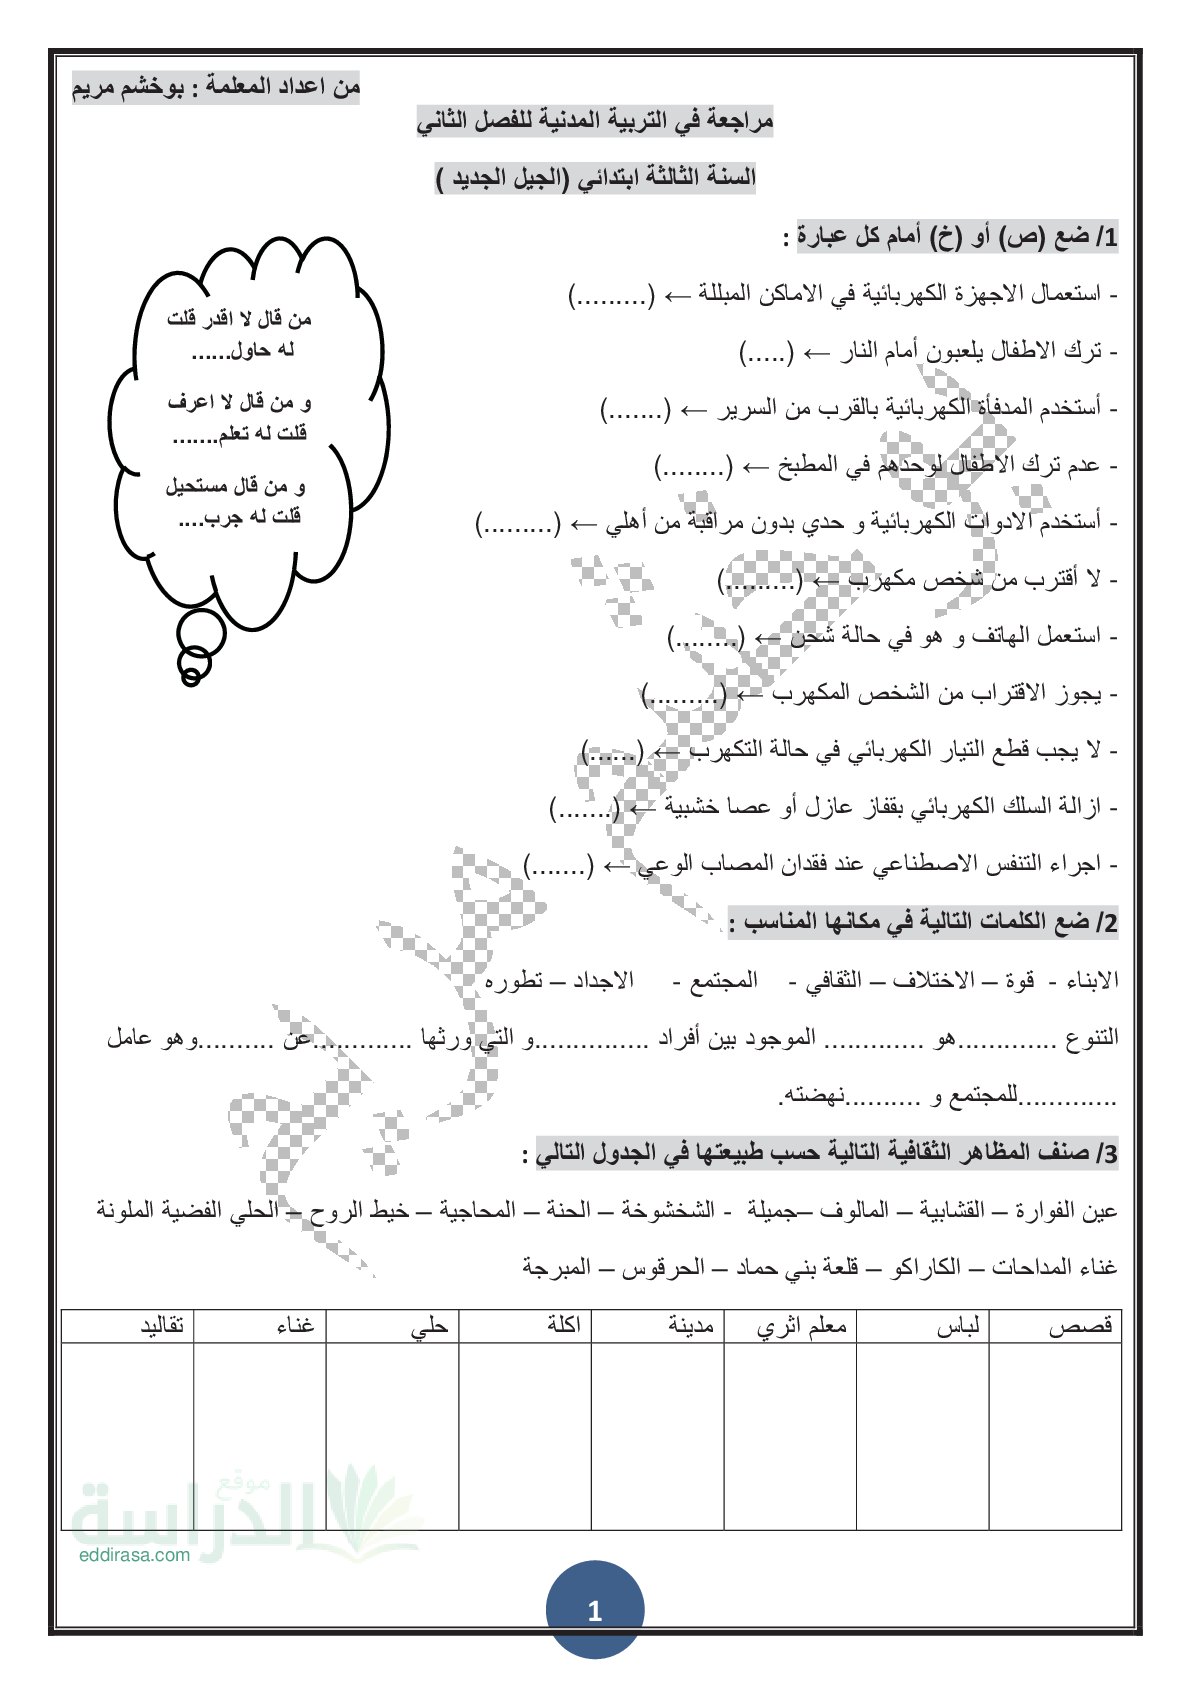 من اعداد المعلمة : بوخشم مريم
مراجعة في التربية المدنية للفصل الثاني
السنة الثالثة ابتدائي (الجيل الجديد )
1/ ضع (ص) أو (خ) أمام كل عبارة :
- استعمال الاجهزة الكهربائية في الاماكن المبللة ← (.........)
- ترك الاطفال يلعبون أمام النار ← (.....)
- أستخدم المدفأة الكهربائية بالقرب من السرير ← (.......)
- عدم ترك الاطفال لوحدهم في المطبخ ← (........)
- أستخدم الادوات الكهربائية و حدي بدون مراقبة من أهلي ← (.........)
- لا أقترب من شخص مكهرب ← (.........)
- استعمل الهاتف و هو في حالة شحن ← (........)
- يجوز الاقتراب من الشخص المكهرب ← (.........)
- لا يجب قطع التيار الكهربائي في حالة التكهرب ← (......)
- ازالة السلك الكهربائي بقفاز عازل أو عصا خشبية ← (.......)
- اجراء التنفس الاصطناعي عند فقدان المصاب الوعي ← (.......)
من قال لا اقدر قلت
له حاول......
و من قال لا اعرف
قلت له تعلم.......
و من قال مستحيل
قلت له جرب....
2/ ضع الكلمات التالية في مكانها المناسب :
الابناء - قوة – الاختلاف – الثقافي - المجتمع - الاجداد – تطوره
التنوع .............هو ............. الموجود بين أفراد ...............و التي ورثها .............عن ..........وهو عامل
.............للمجتمع و ..........نهضته.
3/ صنف المظاهر الثقافية التالية حسب طبيعتها في الجدول التالي :
عين الفوارة – القشابية – المالوف –جميلة - الشخشوخة – الحنة – المحاجية – خيط الروح – الحلي الفضية الملونة
غناء المداحات – الكاراكو – قلعة بني حماد – الحرقوس – المبرجة
قصص لباس معلم اثري مدينة اكلة حلي غناء تقاليد
بوخشم مريم
موقع
الدراسة
eddirasa.com
1